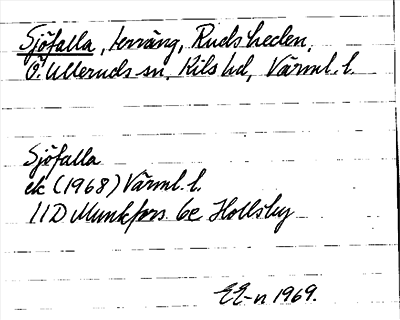 Sjöfalla, terräng, Ruds heden,
Ö. Ulleruds sn, Kils hd, Värml. l.
Sjöfalla
ek (1968) Värml. l.
11D Munkfors 6e Hollsby
EE-n 1969.